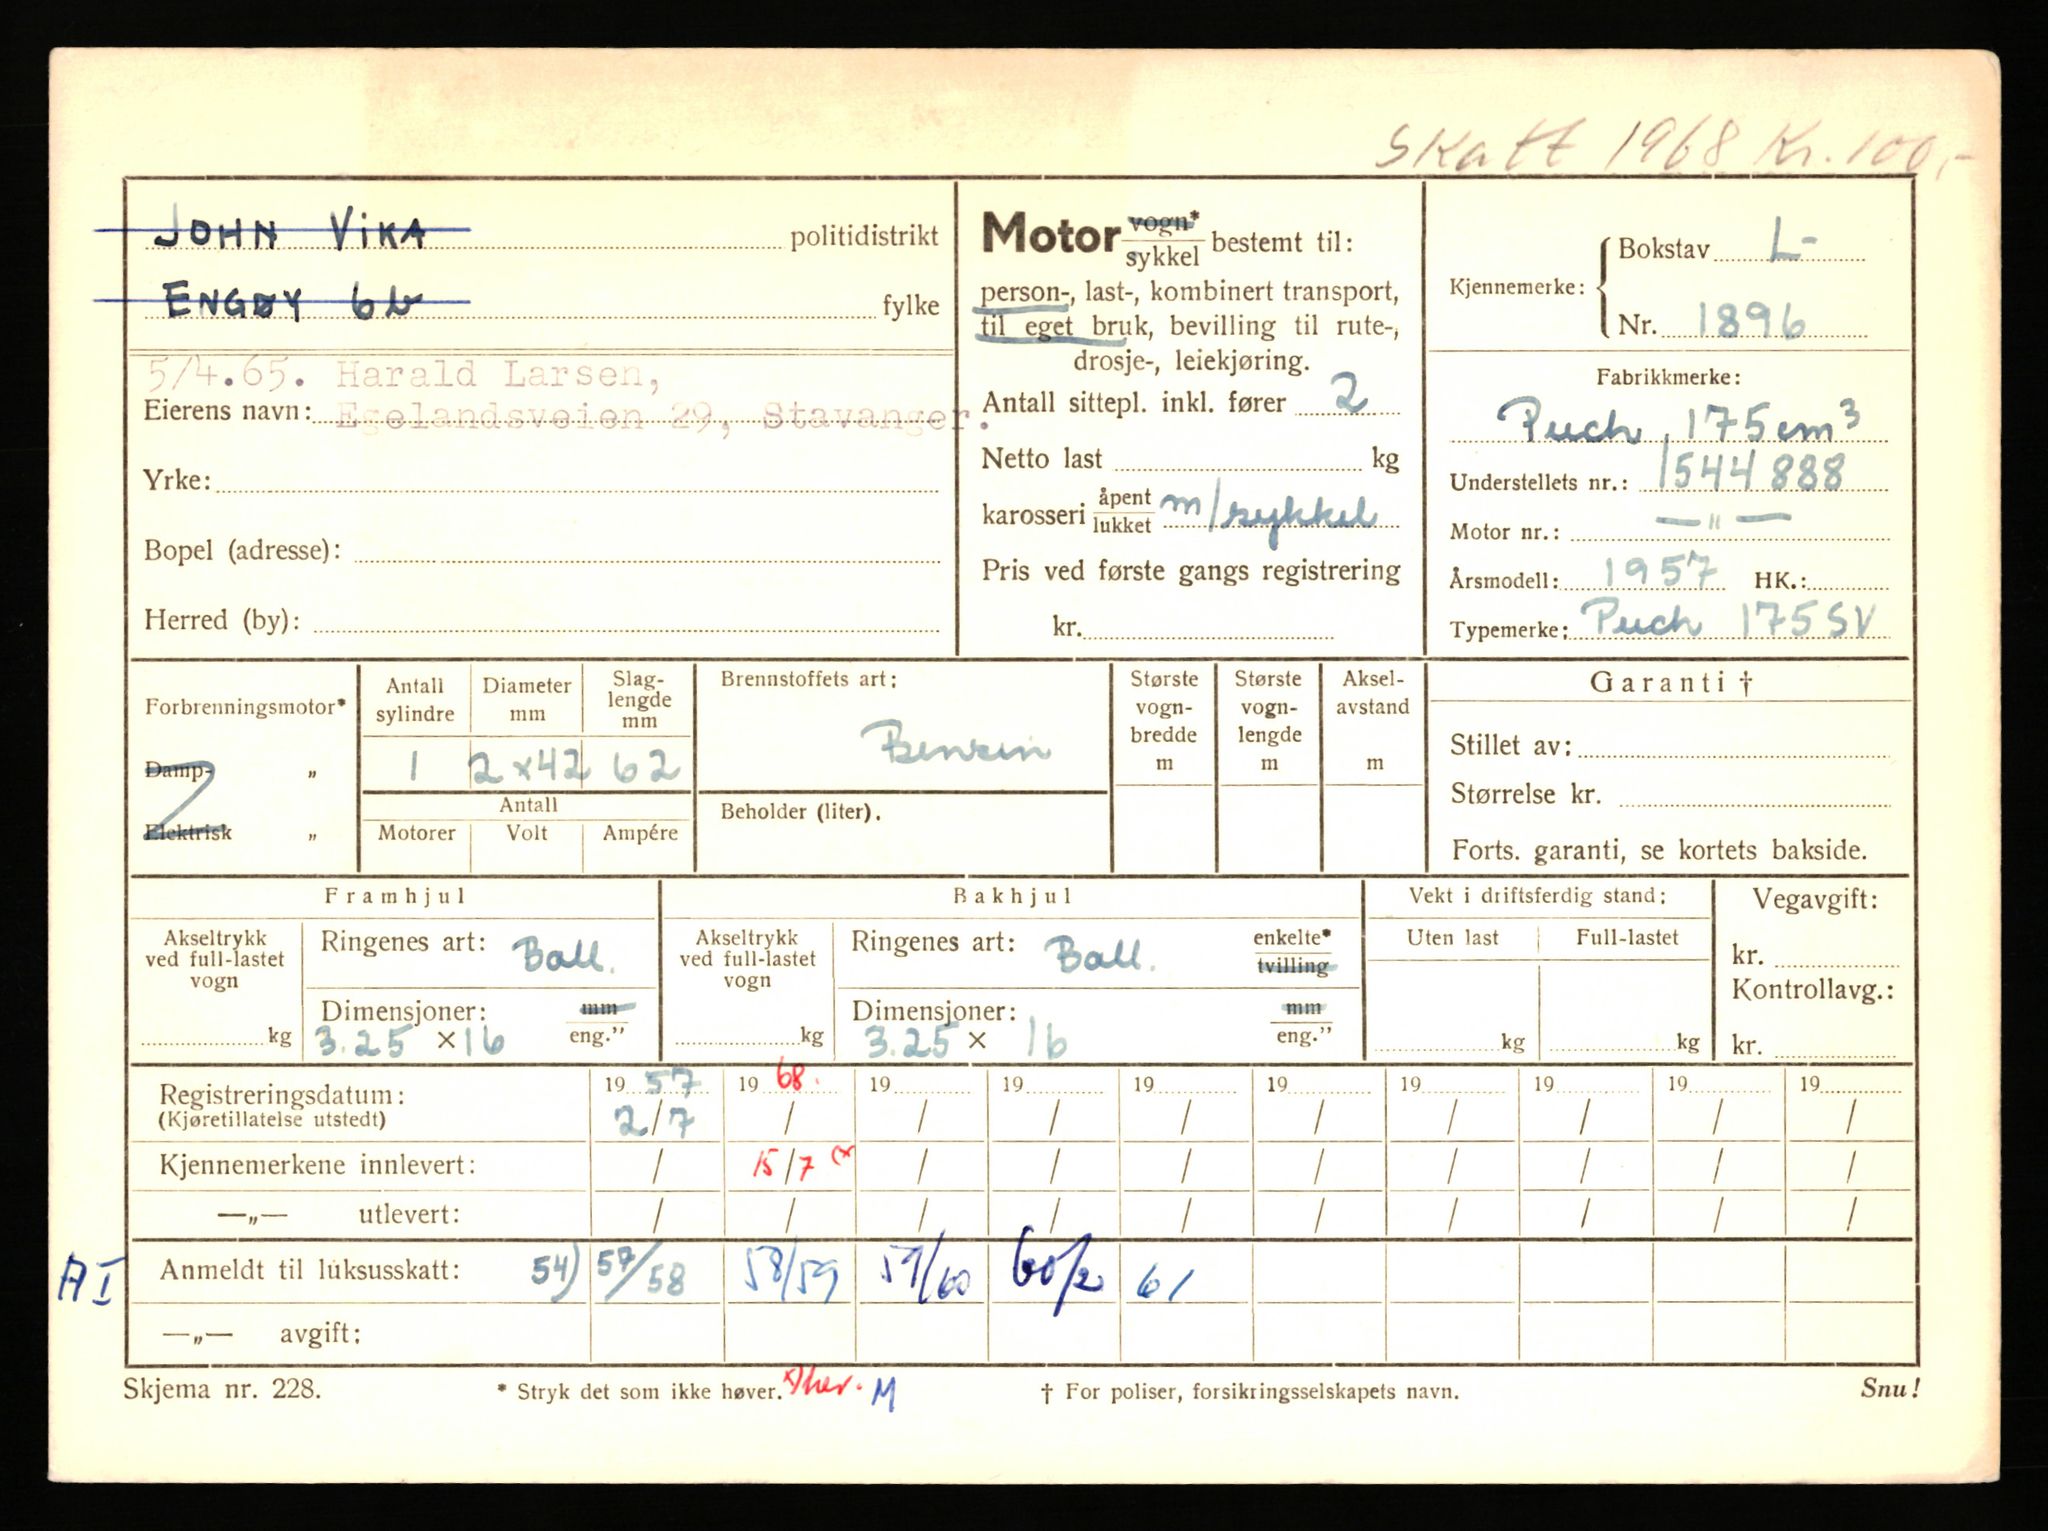 Skatt 1968 Kr. 100,-
JOHN VIKA politidistrikt
ENGØY 6b fylke
5/4.65. Harald Larsen,
Eierens navn: Egelandsveien 29, Stavanger.
Yrke:
Bopel (adresse):
Herred (by):
Motor vogn* sykkel bestemt til:
person-, last-, kombinert transport,
til eget bruk, bevilling til rute-,
drosje-, leiekjøring.
Antall sittepl. inkl. fører 2
Netto last kg
karosseri åpent lukket m/sykkel
Pris ved første gangs registrering
kr.
Kjennemerke: Bokstav L-
Nr. 1896
Fabrikkmerke:
Puch 175 cm3
Understellets nr.: 1544888
Motor nr.: — " —
Årsmodell: 1957 HK.:
Typemerke: Puch 175 SV
Forbrenningsmotor*
Damp- „
Elektrisk „
Antall sylindre
Diameter mm
Slag-lengde mm
1 2x42 62
Antall
Motorer Volt Ampére
Brennstoffets art:
Bensin
Beholder (liter).
Største vogn-bredde m
Største vogn-lengde m
Aksel-avstand m
Garanti †
Stillet av:
Størrelse kr.
Forts. garanti, se kortets bakside.
Framhjul
Akseltrykk ved full-lastet vogn
kg
Ringenes art: Ball.
Dimensjoner: mm
3.25 x 16 eng.”
Bakhjul
Akseltrykk ved full-lastet vogn
kg
Ringenes art: Ball. enkelte* tvilling
Dimensjoner: mm
3.25 x 16 eng.”
Vekt i driftsferdig stand:
Uten last Full-lastet
kg kg
Vegavgift:
kr.
Kontrollavg.:
kr.
Registreringsdatum: 19 57 19 68. 19 19 19 19 19 19 19 19
(Kjøretillatelse utstedt) 2/7 / / / / / / / / /
Kjennemerkene innlevert: / 15/7 (x / / / / / / / /
—„— utlevert: / / / / / / / / / /
A I Anmeldt til luksusskatt: 54) 57/58 58/59 59/60 60/2 61
—„— avgift:
Skjema nr. 228. * Stryk det som ikke høver. x) her. M † For poliser, forsikringsselskapets navn. Snu!